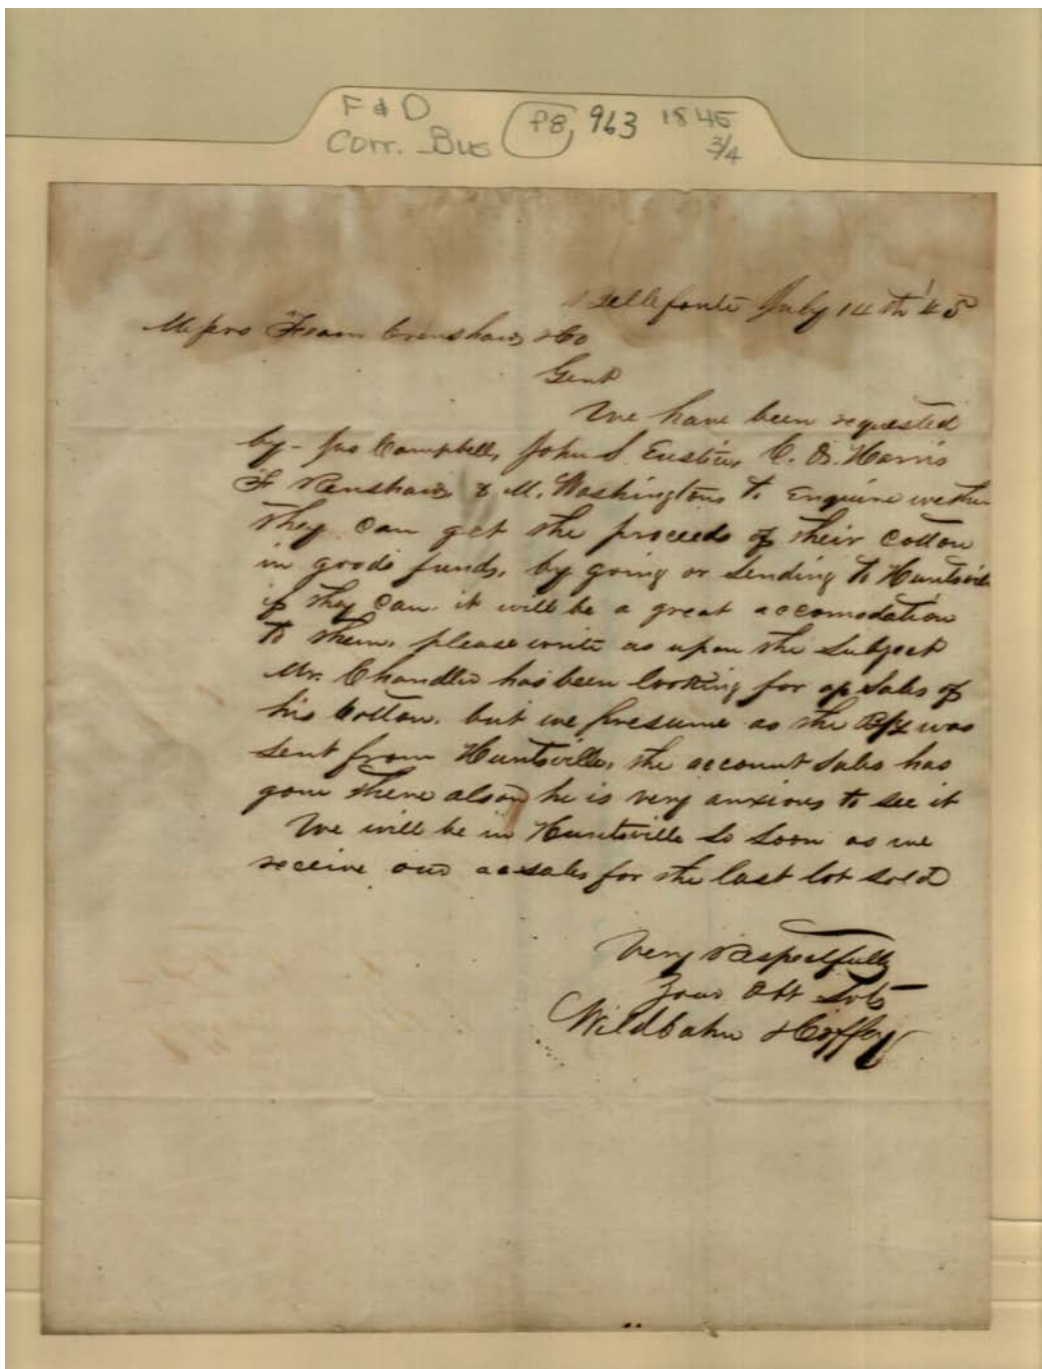 F & D
Corr. Bus P8, 963 1845
3/4
Bellefonte July 14th '45
Messrs Fearn Crenshaw & Co
Gent
We have been requested
by - Jno Campbell, John S. Eustin, C. D. Harris
F Renshaw & M. Washington, to Enquire wether
they can get the proceeds of their Cotton
in good funds, by going or sending to Huntsville
if they can. it will be a great accomodation
to them. please write us upon the subject
Mr. Chandler has been looking for a/c sales of
his Cotton. but we presume as the B/L was
sent from Huntsville, the account sales has
gone there also he is very anxious to see it
We will be in Huntsville so soon as we
receive our ac sales for the last lot sold
Very Respectfully
Your Obt Svts
Wildbahn & Coffey